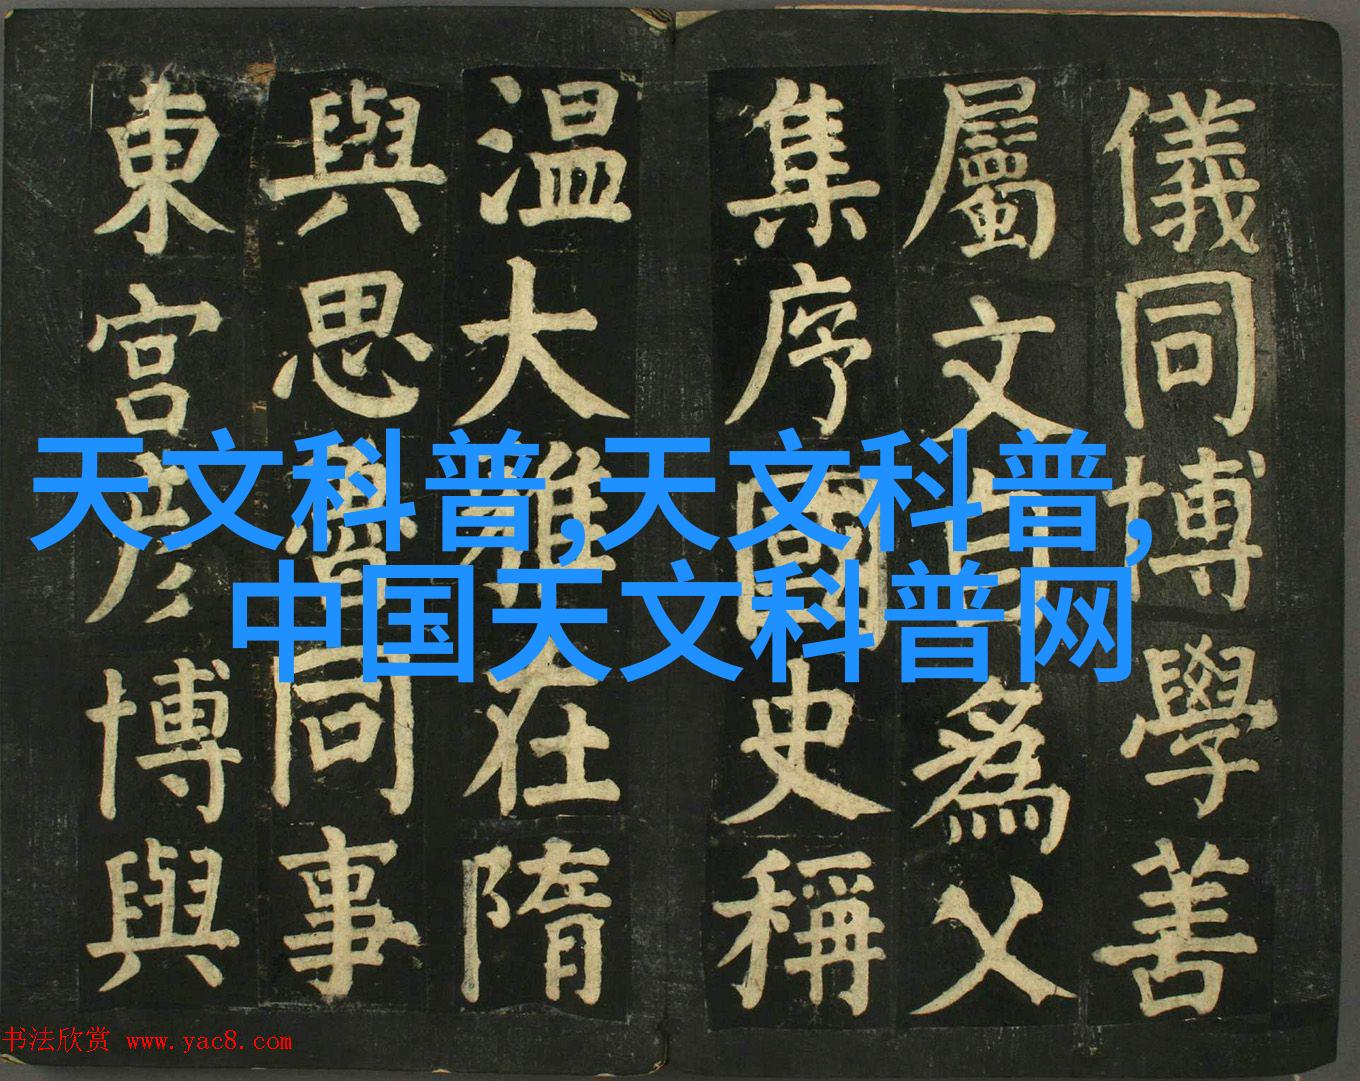 儀同博學善
屬文為父
集序國史稱
溫大雅在隋
與思魯同事
東宮彦博與
天文科普,天文科普,
中国天文科普网
书法欣赏 www.yac8.com